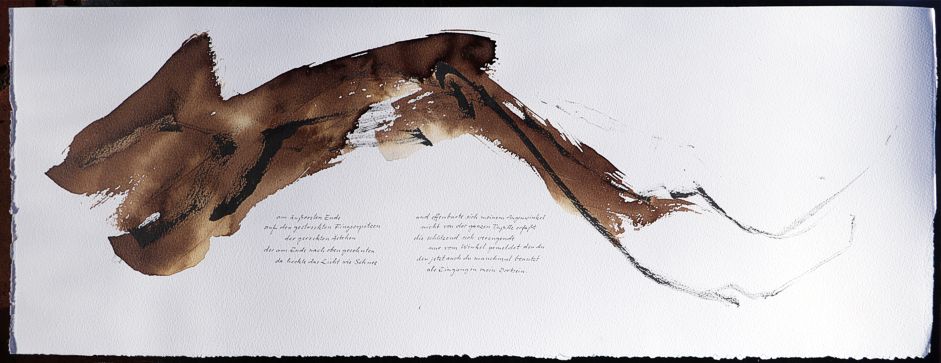 am äußersten Ende
auf den gestreckten Fingerspitzen
der gereckten Ästchen
der am Ende nach oben
da hockte das Licht wie Schnee
und offenbarte sich meinem Augenwinkel
nicht von der ganzen Pupille erfaßt
die schützend sich verengende
nur vom Winkel gemeldet den du
den jetzt auch du manchmal benutzt
als Eingang in mein Dortsein